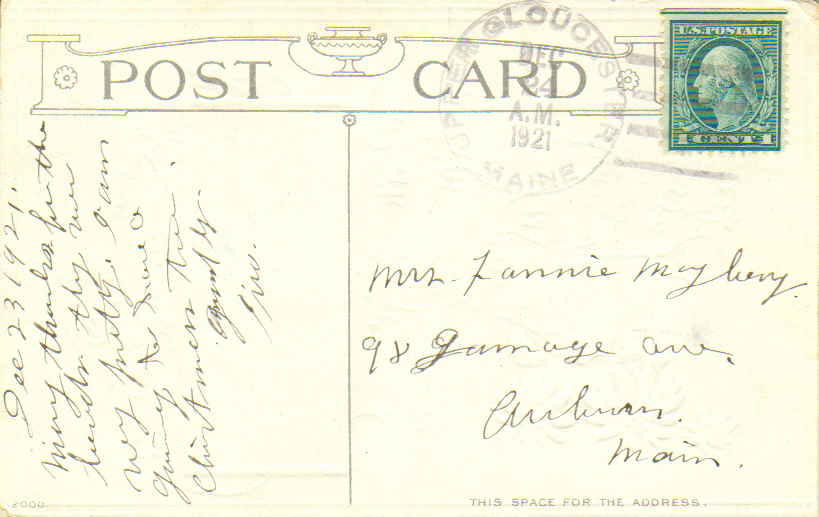 POST CARD
UPPER GLOUCESTER.
DEC
24
A.M.
1921
MAINE
U.S. POSTAGE
1 CENT 1
Dec 23 1921.
Many thanks for the
they are
very pretty. I am
going to have a
Christmas tree.
Mrs. Fannie Mayberry.
98 Gamage ave,
Auburn.
Main.
2000
THIS SPACE FOR THE ADDRESS.